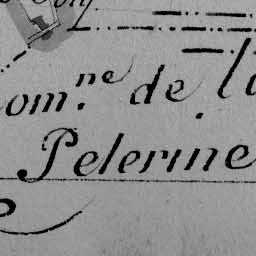 om.ne de l
Pelerine